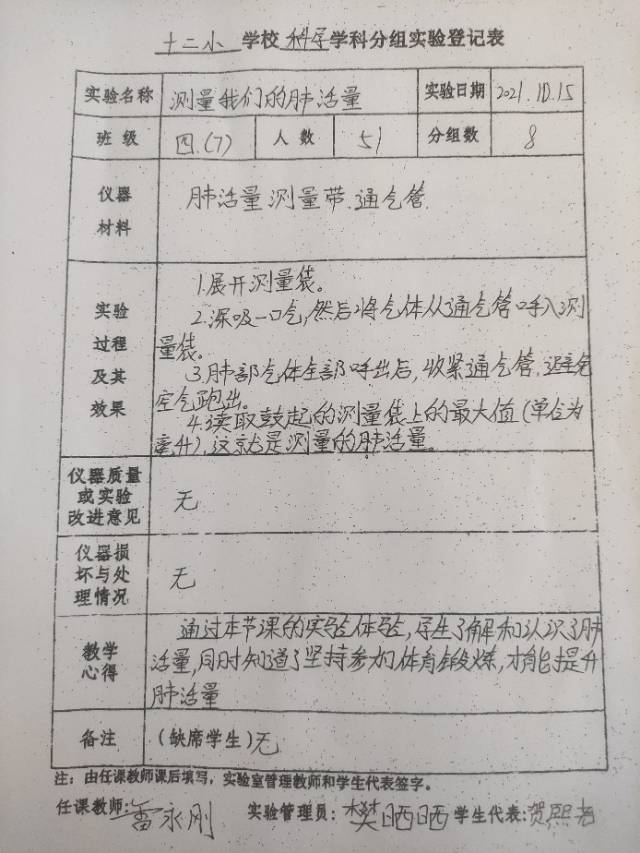 十二小学校科学学科分组实验登记表
实验名称 测量我们的肺活量 实验日期 2021.10.15
班级 四.(7) 人数 51 分组数 8
仪器材料 肺活量测量带.通气管.
实验过程及其效果
1.展开测量袋。
2.深吸一口气,然后将气体从通气管呼入测
量袋。
3.肺部气体全部呼出后,收紧通气管,避免
空气跑出。
4.读取鼓起的测量袋上的最大值(单位为
毫升),这就是测量的肺活量。
仪器质量或实验改进意见 无
仪器损坏与处理情况 无
教学心得
通过本节课的实验体验,学生了解和认识了肺
活量,同时知道了坚持参加体育锻炼,才能提升
肺活量
备注 (缺席学生)无
注:由任课教师课后填写,实验室管理教师和学生代表签字。
任课教师:雷永刚 实验管理员:樊晒晒 学生代表:贺熙